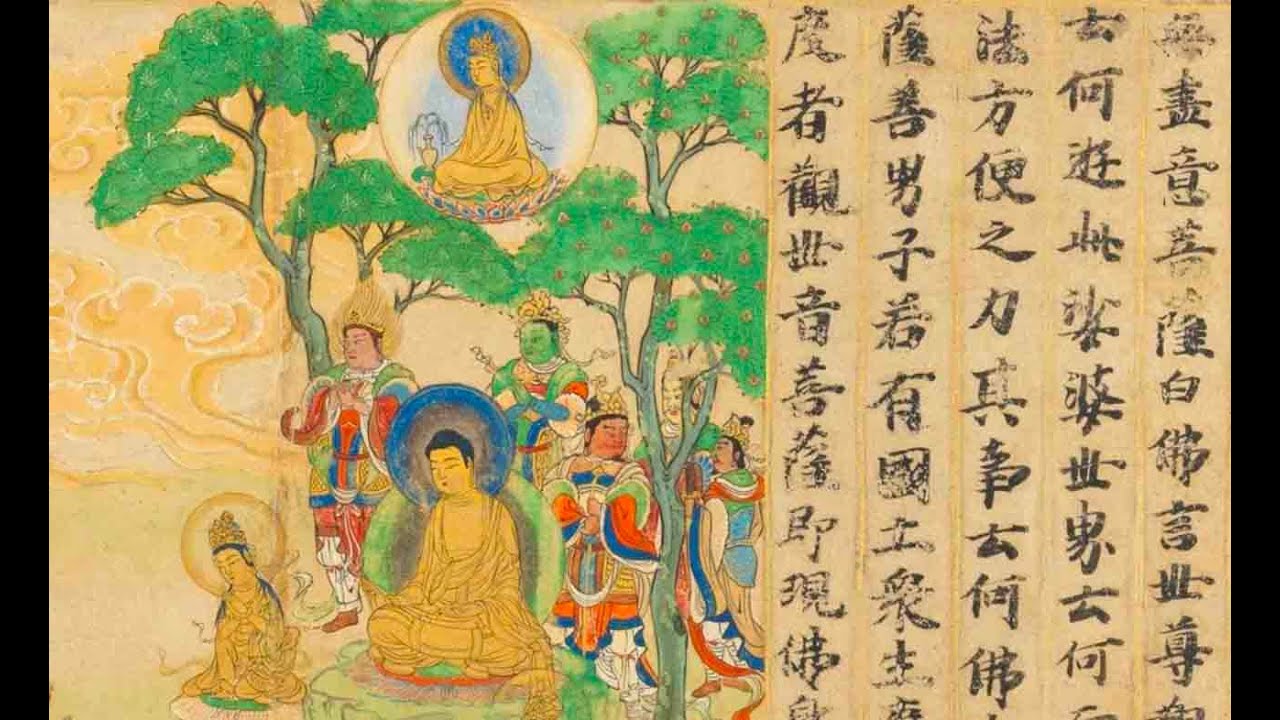 無盡意菩薩白佛言世尊觀
云何遊此娑婆世界云何
法方便之力其事云何佛
薩善男子若有國土衆生應
度者觀世音菩薩即現佛